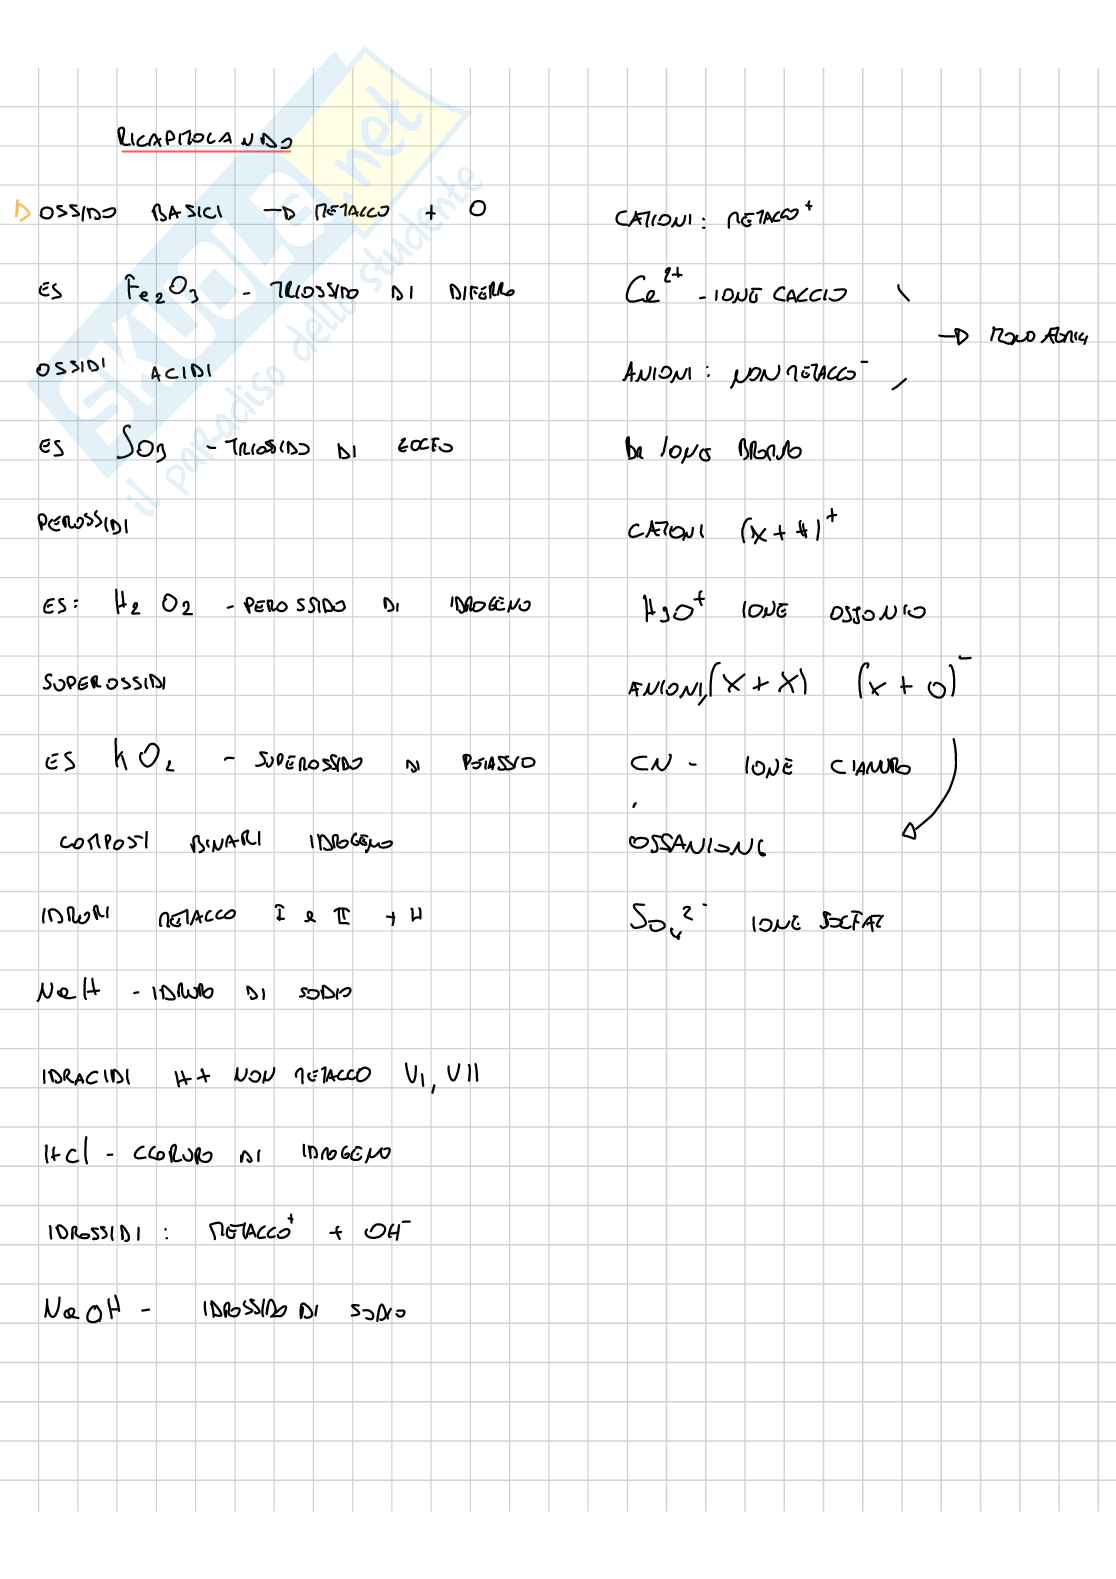 RICAPITOLANDO
OSSIDO BASICI → METALLO + O
ES Fe₂O₃ - TRIOSSIDO DI DIFERRO
OSSIDI ACIDI
ES SO₃ - TRIOSSIDO DI ZOLFO
PEROSSIDI
ES: H₂O₂ - PEROSSIDO DI IDROGENO
SUPEROSSIDI
ES KO₂ - SUPEROSSIDO DI POTASSIO
COMPOSTI BINARI IDROGENO
IDRURI METALLO I e II + H
NaH - IDRURO DI SODIO
IDRACIDI H + NON METALLO VI, VII
HCl - CLORURO DI IDROGENO
IDROSSIDI : METALLO⁺ + OH⁻
NaOH - IDROSSIDO DI SODIO
CATIONI : METALLO⁺
Ca²⁺ - IONE CALCIO
→ MONOATOMICI
ANIONI : NON METALLO⁻
Br IONE BROMO
CATIONI (X + H)⁺
H₃O⁺ IONE OSSONIO
ANIONI, (X + X) (X + O)⁻
CN - IONE CIANURO
OSSANIONE
SO₄²⁻ IONE SOLFAT
SKUOLA.net
il paradiso dello studente